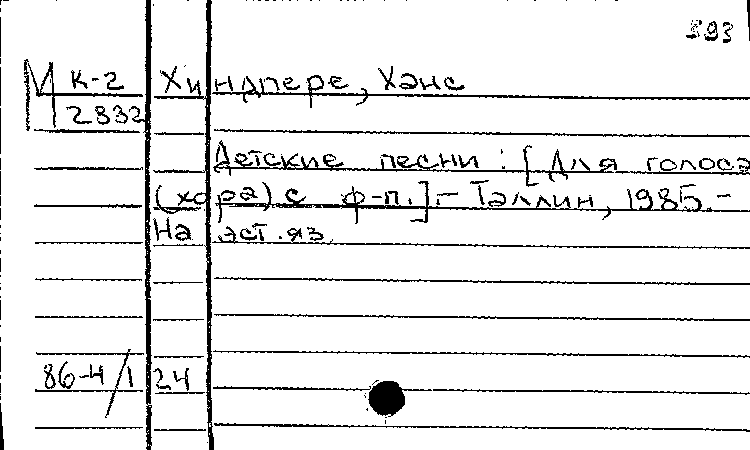 393
М К-2 Хиндпере, Ханс
2832
Детские песни : [Для голоса
(хора) с ф-п.]. - Таллин, 1985. -
На эст. яз.
86-4/124